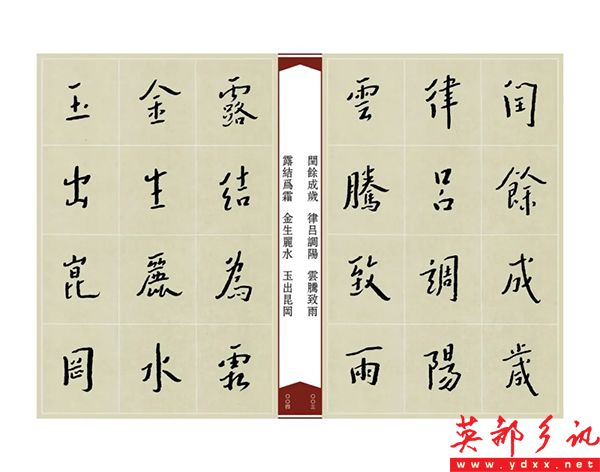 閏餘成歲
律呂調陽
雲騰致雨
閏餘成歲 律呂調陽 雲騰致雨
露結爲霜 金生麗水 玉出昆岡
〇〇三
〇〇四
露結為霜
金生麗水
玉出崑岡
英都乡讯
www.ydxx.net